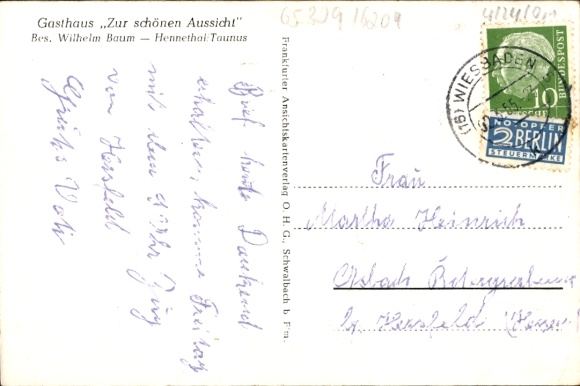 65329 16209
Gasthaus „Zur schönen Aussicht"
Bes. Wilhelm Baum — Hennethal/Taunus
Brief heute Dankend
erhalten, komme Freitag
mit dem Uhr Zug
von Hersfeld
Gruß Vati
Frankfurter Ansichtskartenverlag O. H. G., Schwalbach b. Ffm.
(16) WIESBADEN
DEUTSCHE BUNDESPOST
10
NOTOPFER
2 BERLIN
STEUERMARKE
Frau
Martha Heinrich
Asbach
bz. Hersfeld (Hessen)